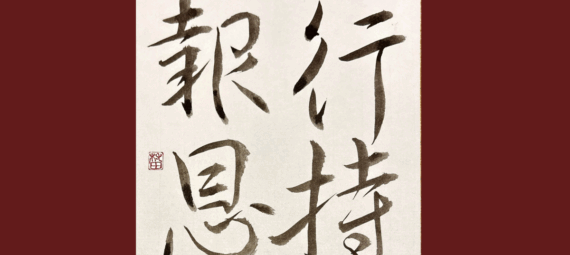 行持
報恩